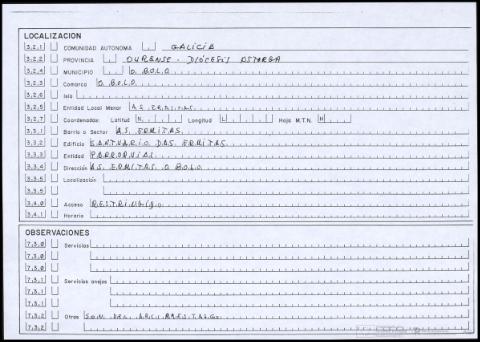 LOCALIZACION
3,2,1 COMUNIDAD AUTONOMA GALICIA
3,2,2 PROVINCIA OURENSE - DIOCESIS ASTORGA
3,2,4 MUNICIPIO O BOLO
3,2,3 Comarca O BOLO
3,2,6 Isla
3,2,5 Entidad Local Menor AS ERMITAS
3,2,7 Coordenadas: Latitud N Longitud L Hoja M.T.N. N
3,3,1 Barrio o Sector AS ERMITAS
3,3,2 Edificio SANTUARIO DAS ERMITAS
3,3,3 Entidad PARROQUIAS
3,3,4 Dirección AS ERMITAS O BOLO
3,3,5 Localización
3,3,5
3,4,0 Acceso RESTRINGIDO
3,4,1 Horario
OBSERVACIONES
7,3,0 Servicios
7,3,0
7,3,0
7,3,1 Servicios anejos
7,3,1
7,3,1
7,3,2 Otros
7,3,2